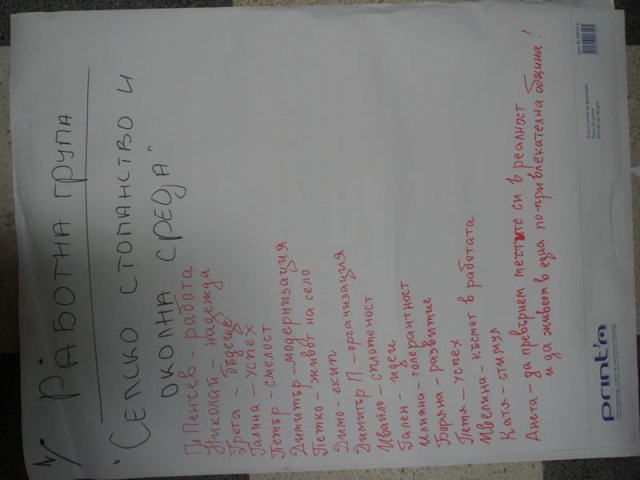 1/ РАБОТНА ГРУПА
"СЕЛСКО СТОПАНСТВО И
ОКОЛНА СРЕДА"
П. Пенчев - работа
Николай - надежда
Грота - бъдеще
Галина - успех
Петър - смелост
Димитър - модернизация
Петко - живот на село
Димо - екип
Димитър П. - организация
Ивайло - сплотеност
Гален - идеи
Илияна - толерантност
Боряна - развитие
Петя - успех
Ивелина - късмет в работата
Катя - стимул
Анета - да превърнем мечтите си в реалност
и да живеем в една по-привлекателна община!
print'n